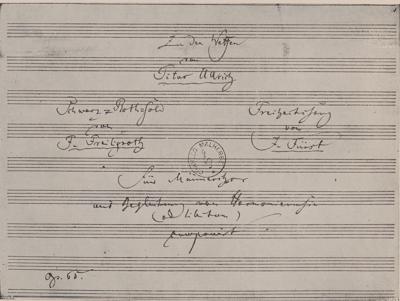 Zu den Waffen
von
Titus Ullrich
Schwarz-Roth-Gold
von
F. Freiligrath
Freiheitssang
von
J. Fürst
MALHERBE
Für Männerchor
mit Begleitung von Harmoniemusik
(ad libitum)
componirt
Op. 65.